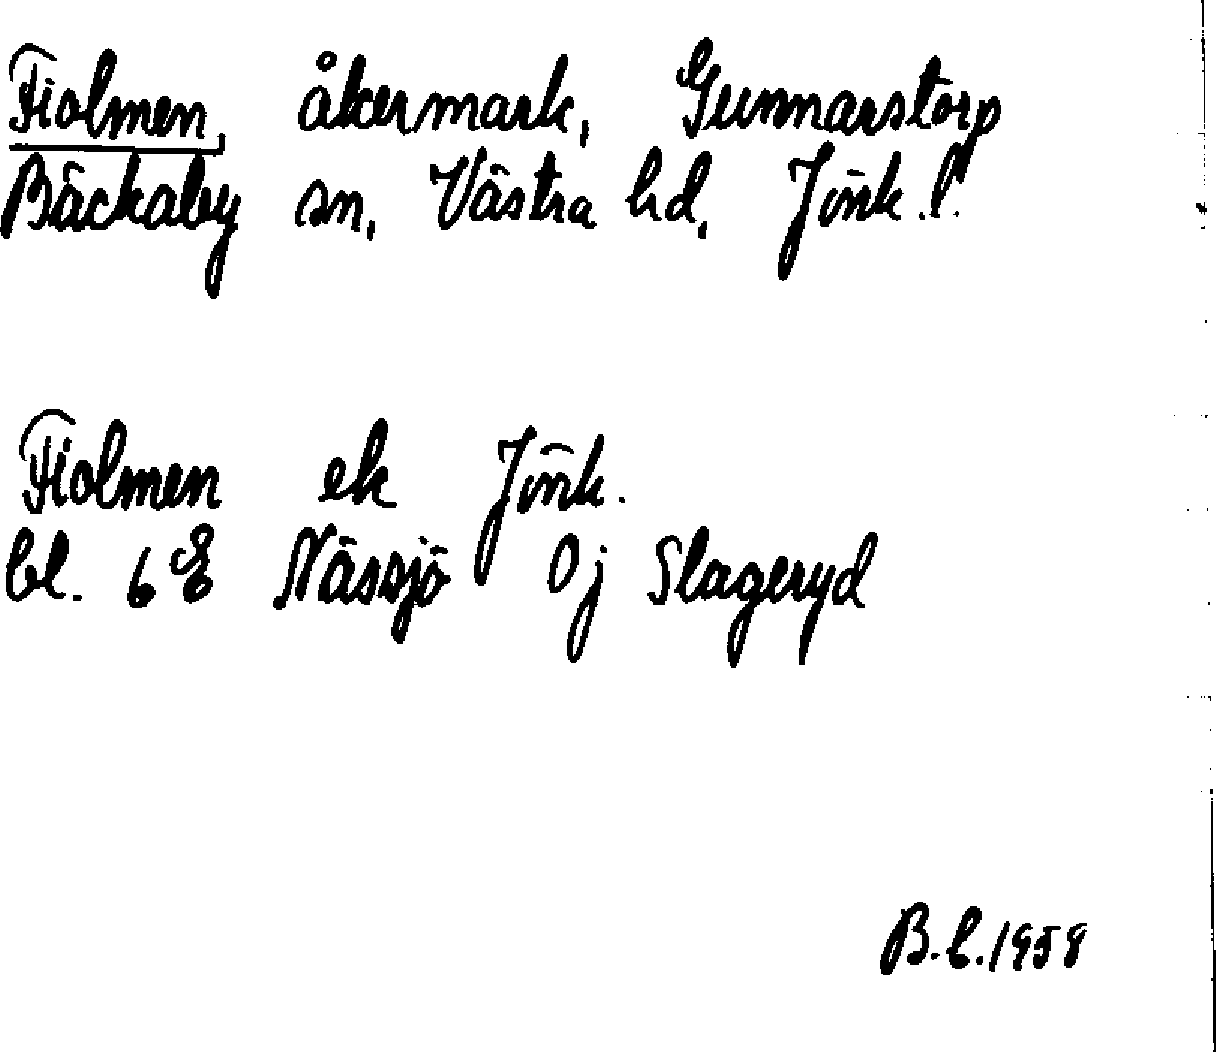 Fiolmen, åkermark, Gunnarstorp
Bäckaby sn, Västra hd, Jönk.l.
Fiolmen ek Jönk.
bl. 6 E Nässjö 0j Slageryd
B.L.1958